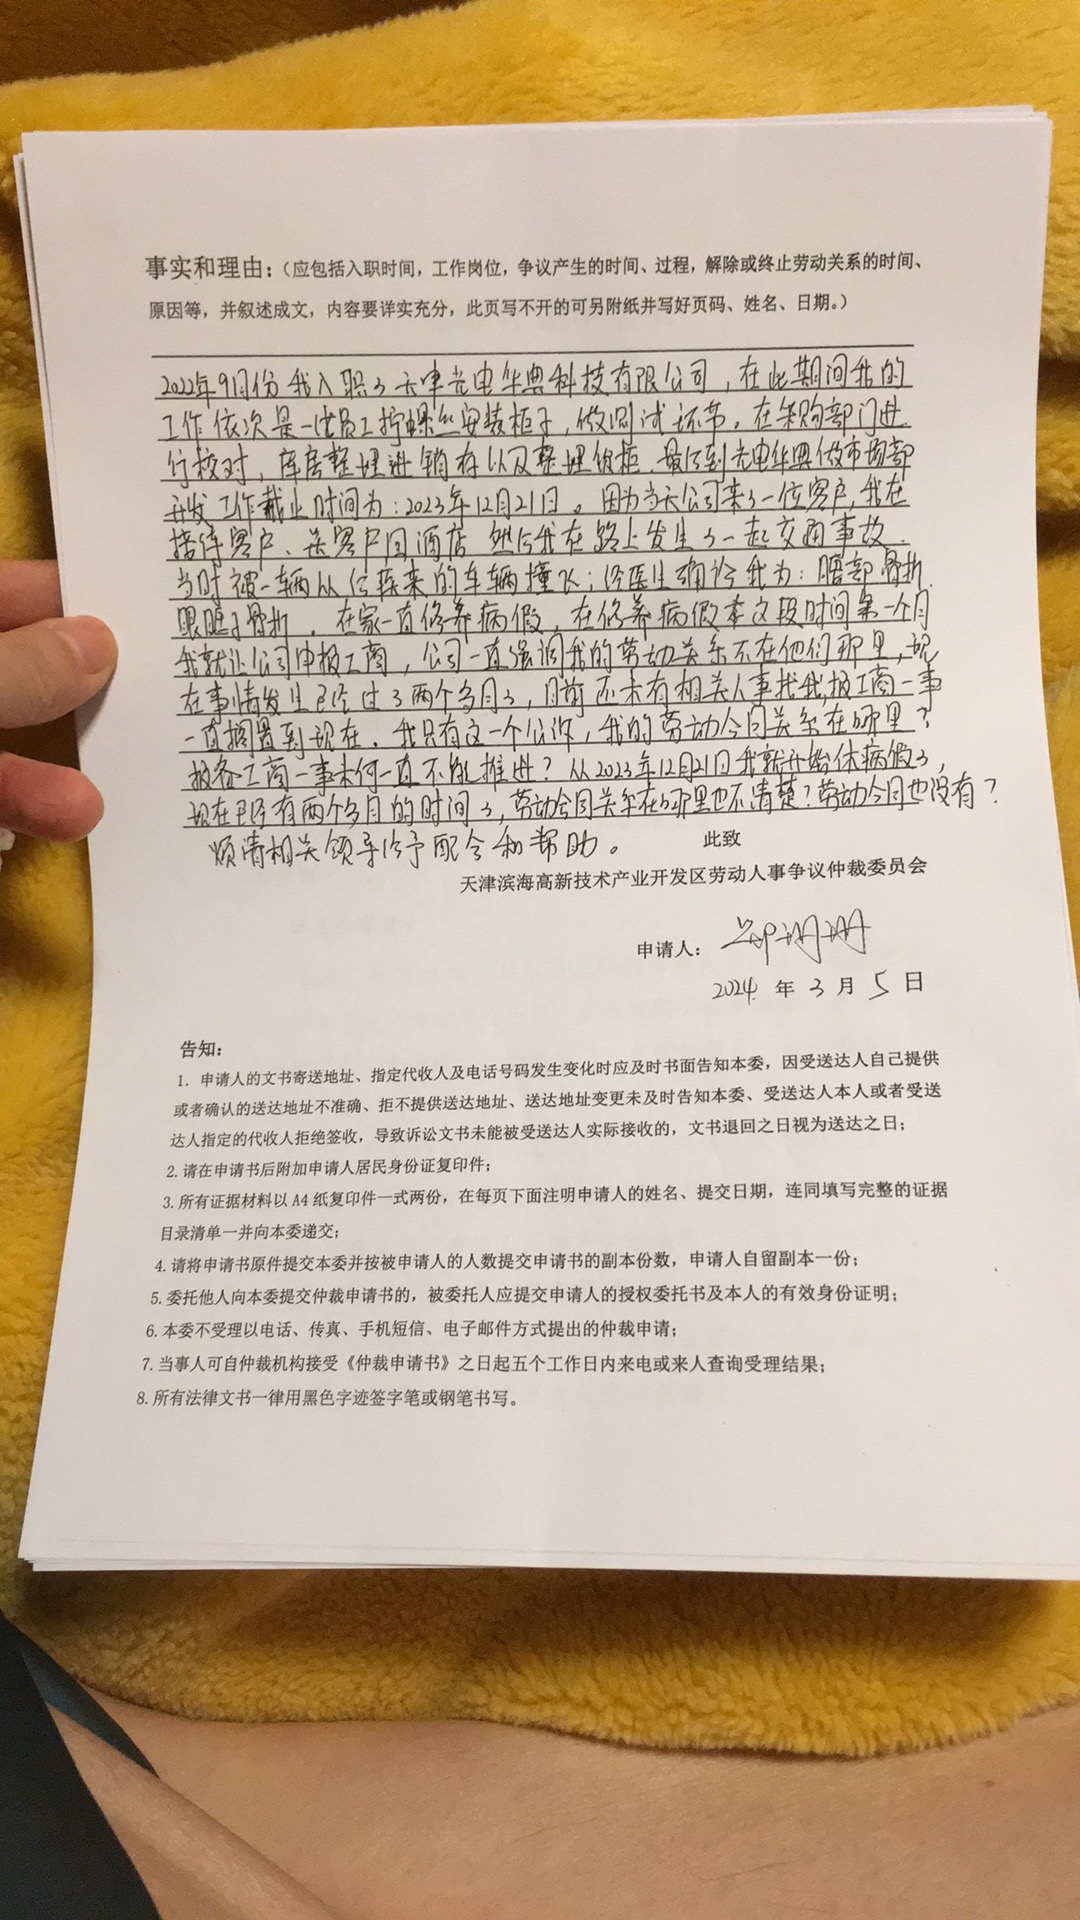 事实和理由：（应包括入职时间，工作岗位，争议产生的时间、过程，解除或终止劳动关系的时间、
原因等，并叙述成文，内容要详实充分，此页写不开的可另附纸并写好页码、姓名、日期。）
2022年9月份我入职了天津光电华典科技有限公司，在此期间我的
工作依次是一线员工拧螺丝安装柜子，做测试环节。在采购部门进
行核对，库房整理进销存以及整理纸柜，最后到光电华典做市场部
开发工作截止时间为：2023年12月21日。因为当天公司来了一位客户，我在
接待客户、送客户回酒店 然后我在路上发生了一起交通事故.
当时被一辆从后疾来的车辆撞飞；经医生确诊我为：腰部骨折
眼眶子骨折，在家一直修养病假，在修养病假本文段时间第一个月
我就让公司申报工商，公司一直强调我的劳动关系不在他们那里，现
在事情发生已经过了两个多月了，目前还未有相关人事找我，报工商一事
一直搁置到现在。我只有这一个公作，我的劳动合同关系在哪里？
报备工商一事未何一直不能推进？从2023年12月21日我就开始休病假了，
现在已经有两个多月的时间了，劳动合同关系在哪里也不清楚？劳动合同也没有？
烦请相关领导给予配合和帮助。 此致
天津滨海高新技术产业开发区劳动人事争议仲裁委员会
申请人： 珊珊
2024 年 3 月 5 日
告知：
1. 申请人的文书寄送地址、指定代收人及电话号码发生变化时应及时书面告知本委，因受送达人自己提供
或者确认的送达地址不准确、拒不提供送达地址、送达地址变更未及时告知本委、受送达人本人或者受送
达人指定的代收人拒绝签收，导致诉讼文书未能被受送达人实际接收的，文书退回之日视为送达之日；
2.请在申请书后附加申请人居民身份证复印件；
3.所有证据材料以 A4 纸复印件一式两份，在每页下面注明申请人的姓名、提交日期，连同填写完整的证据
目录清单一并向本委递交；
4.请将申请书原件提交本委并按被申请人的人数提交申请书的副本份数，申请人自留副本一份；
5.委托他人向本委提交仲裁申请书的，被委托人应提交申请人的授权委托书及本人的有效身份证明；
6.本委不受理以电话、传真、手机短信、电子邮件方式提出的仲裁申请；
7.当事人可自仲裁机构接受《仲裁申请书》之日起五个工作日内来电或来人查询受理结果；
8.所有法律文书一律用黑色字迹签字笔或钢笔书写。